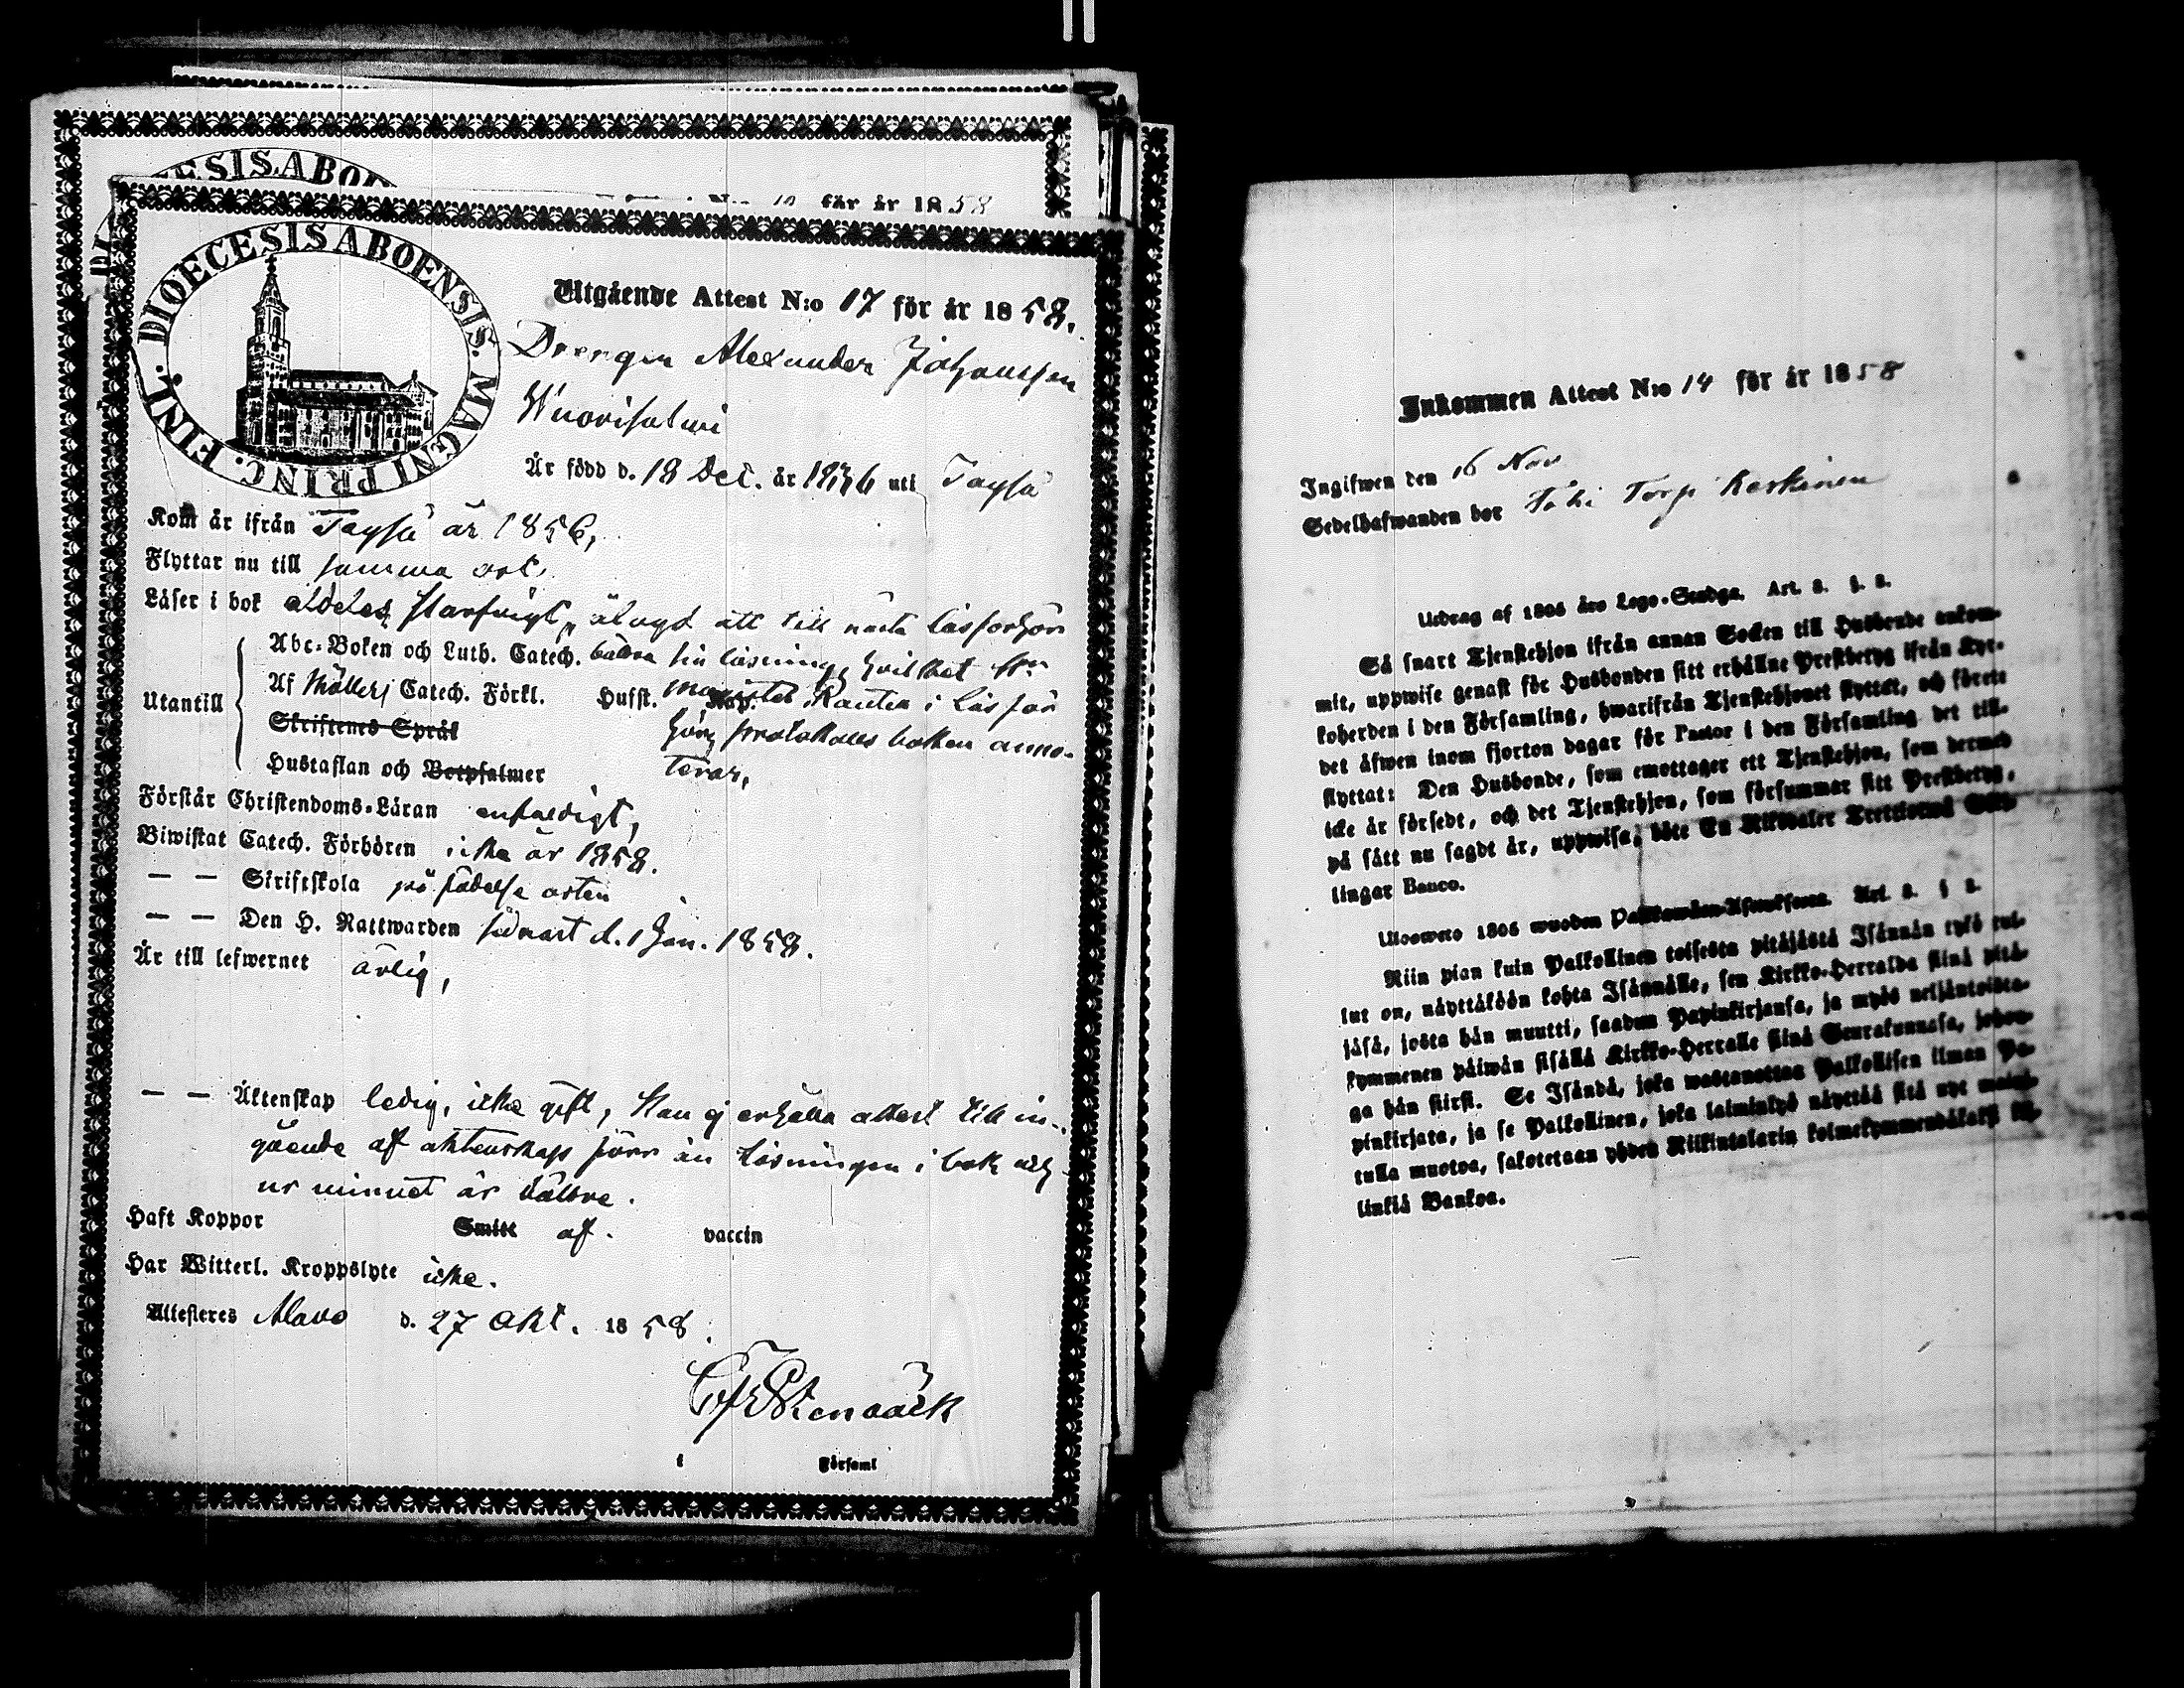 ESIS ABO
för år 1858
DIOECESIS ABOENSIS. MAGNI PRINC. FINL.
Utgående Attest N:o 17 för år 1858.
Drengen Alexander Johansson
Wuorisalmi
Är född d. 18 Dec. år 1836 uti Töysä
Kom år ifrån Töysä år 1856,
Flyttar nu till samma ort.
Läser i bok aldeles starfvigt, ålagd att till nästa läsförhör
Utantill
Abc-Boken och Luth. Catech. bättra sin läsning, hvilket Hr
Af Möllers Catech. Förkl. Hufst. Kap. magister Kanten i läsför
Skriftenes Språk hörs protokolls boken anno-
Hustaflan och Botpsalmer terar,
Förstår Christendoms-Läran enfaldigt,
Biwistat Catech. Förhören icke år 1858.
— — Skriftskola på födelse orten
— — Den H. Nattwarden sednast d. 1 Jan. 1858.
Är till lefwernet ärlig,
— — Äktenskap ledig, icke gift, Kan ej erhålla attest till in-
gående af äktenskap förr än läsningen i bok och
ur minnet är bättre.
Haft Koppor Smitt af. vaccin
Har Witterl. Kroppslyte icke.
Attesteres Alavo d. 27 Okt. 1858.
Stenbäck
i Församl
Inkommen Attest N:o 14 för år 1858
Ingifwen den 16 Nov
Sedelhafwanden bor Torp Koskinen
Utdrag af 1805 års Lego-Stadga. Art. 3. §. 2.
Så snart Tjenstehjon ifrån annan Socken till Husbonde ankom-
mit, uppwise genast för Husbonden sitt erhållne Prestbetyg ifrån Kyr-
koherden i den Församling, hwarifrån Tjenstehjonet flyttat, och förete
det äfwen inom fjorton dagar för Pastor i den Församling det till-
flyttat: Den Husbonde, som emottager ett Tjenstehjon, som dermed
icke är försedt, och det Tjenstehjon, som försummar sitt Prestbetyg,
på sätt nu sagdt är, uppwisa, böte En Riksdaler Trettiotwå Skil-
lingar Banco.
Ulosweto 1805 wuoden Palkowäen-Asetuksesta. Art. 3. § 2.
Niin pian kuin Palkollinen toisesta pitäjästä Isännän tykö tul-
lut on, näyttäköön kohta Isännälle, sen Kirkko-Herralda siinä pitä-
jäsä, josta hän muutti, saadun Papinkirjansa, ja myös neljäntoista-
kymmenen päiwän sisällä Kirkko-Herralle siinä Seurakunnasa, johon-
ga hän siirsi. Se Isändä, joka wastanottaa Palkollisen ilman Pa-
pinkirjata, ja se Palkollinen, joka laiminlyö näyttää sitä nyt mainit-
tulla muotoa, sakotetaan yhden Riikintalarin kolmekymmendäkaksi kil-
linkiä Bankoa.